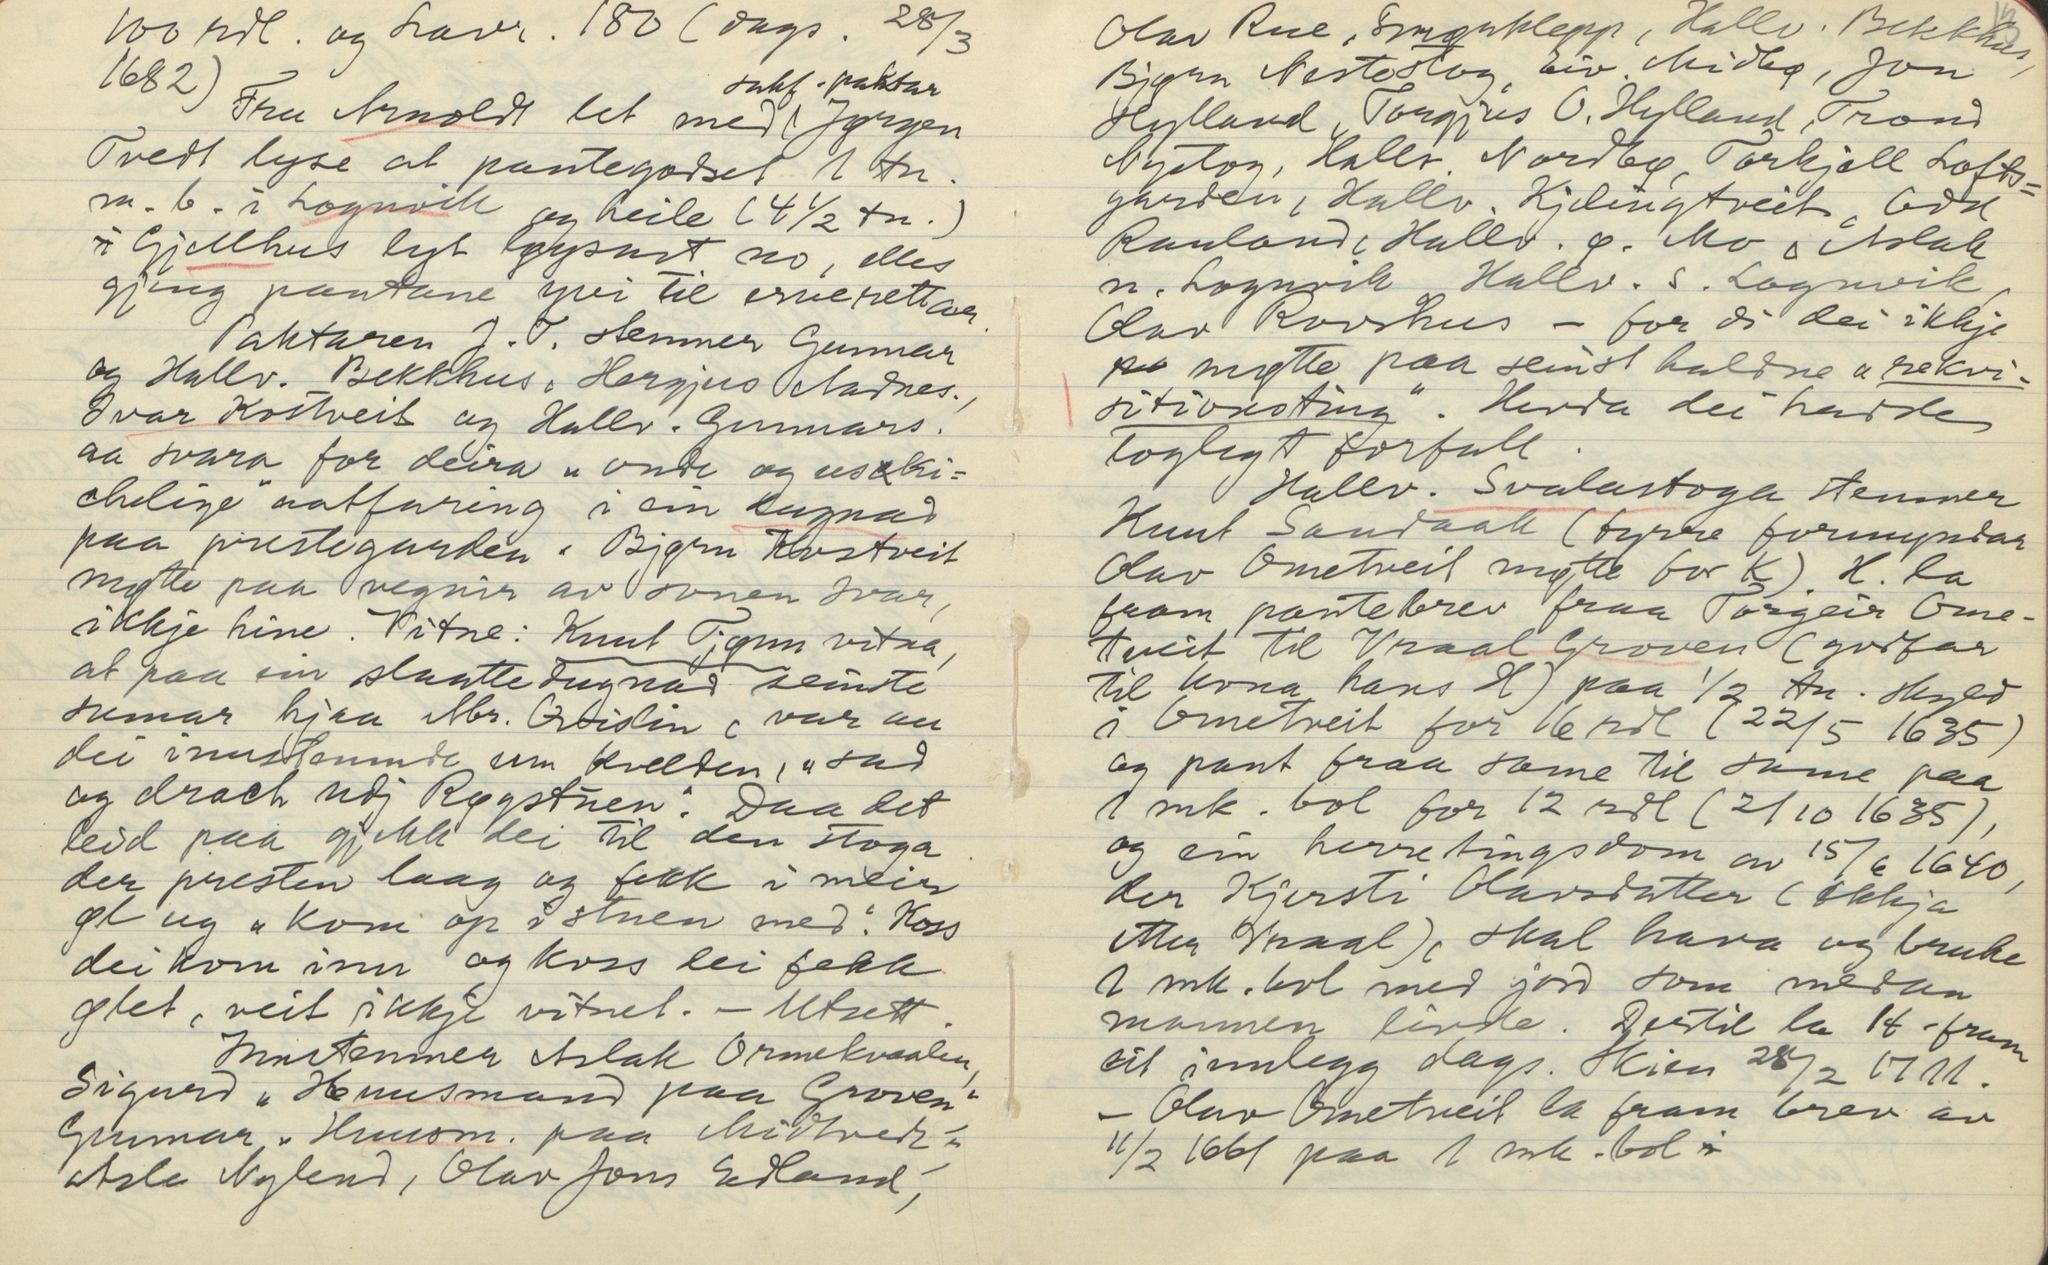 100 rdl. og Lavr. 180 (dags. 28/3
1682)
sakf. paktar
Fru Arnoldt let med Jørgen
Tvedt lyse at pantegodset 1 tn.
m. b. i Lognvik og heile (4 1/2 tn.)
i Gjellhus lyt løysast no, elles
gjeng pantane yvi til erverettar.
Paktaren J. T. stemner Gunnar
og Hallv. Bekkhus, Hergjus Aadnes.,
Ivar Kostveit og Hallv. Gunnars.
aa svara for deira „onde og uski=
chelige" aatfaring i ein dugnad
paa prestegarden. Bjørn Kostveit
møtte paa vegnir av sonen Ivar,
ikkje hine. Vitne: Knut Tjønn vitna,
at paa ein slaattedugnad seinste
sumar hjaa Mr. Ovidin, var au
dei innstemnde um kvelden, „sad
og drach udj Røgstuen". Daa det
leid paa gjekk dei til den stoga
der presten laag og fekk i meir
øl og „kom op i stuen med". Koss
dei kom inn og koss dei fekk
ølet, veit ikkje vitnet. — Utsett.
Innstemner Aslak Ormekvaalen,
Sigurd „Huusmand paa Groven"
Gunnar „Huusm. paa Midtvedt",
Asle Nylend, Olav Jons Edland,
Olav Rue, Smørklepp, Hallv. Bekkhus,
Bjørn Nestestog, Eiv. Midbø, Jon
Hylland, Torgjus O. Hylland, Trond
Nystog, Hallv. Nordbø, Torkjell Lofts=
garden, Hallv. Kjelingtveit, Odd
Rauland, Hallv. ø. Mo, Aslak
n. Lognvik, Hallv. s. Lognvik,
Olav Rovshus — for di dei ikkje
møtte paa seinst haldne „rekvi-
sitionsting". Herda dei hadde
loglegt forfall.
Hallv. Svalastoga stemner
Knut Sandaak (fyrre formyndar
Olav Ometveit møtte for K). H. la
fram pantebrev fraa Torgeir Ome-
tveit til Vraal Groven (godfar
til kona hans H) paa 1/2 tn. skyld
i Ometveit for 16 rdl (22/5 1635)
og pant fraa same til same paa
1 mk. bol for 12 rdl (2/10 1635),
og ein herretingsdom av 15/6 1640,
der Kjersti Olavsdatter (ekkja
etter Vraal), skal hava og bruke
1 mk. bol med jord som medan
mannen livde. Dertil la H. fram
eit innlegg dags. Skien 28/2 1711.
— Olav Ometveit la fram brev av
11/2 1661 paa 1 mk. bol i